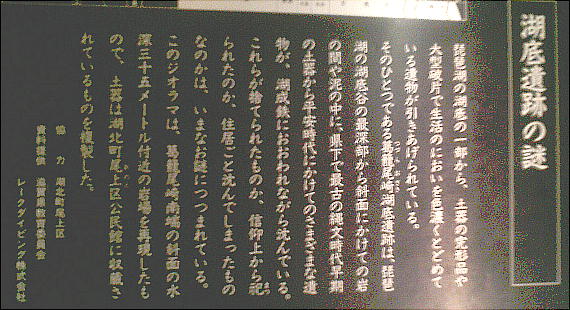 湖底遺跡の謎
琵琶湖の湖底の一部から、土器の完形品や
大型破片で生活のにおいを色濃くとどめて
いる遺物が引きあげられている。
そのひとつである葛籠尾崎湖底遺跡は、琵琶
湖の湖底谷の最深部から斜面にかけての岩
の間や泥の中に、県下で最古の縄文時代早期
の土器から平安時代にかけてのさまざまな遺
物が、湖成鉄におおわれながら沈んでいる。
これらが捨てられたものか、信仰上から祀
られたのか、住居ごと沈んでしまったもの
なのかは、いまなお謎につつまれている。
このジオラマは、葛籠尾崎南端の斜面の水
深三十五メートル付近の岩場を再現したも
ので、土器は湖北町尾上区公民館に収蔵さ
れているものを複製した。
協力 湖北町尾上区
資料提供 滋賀県教育委員会
レークダイビング株式会社